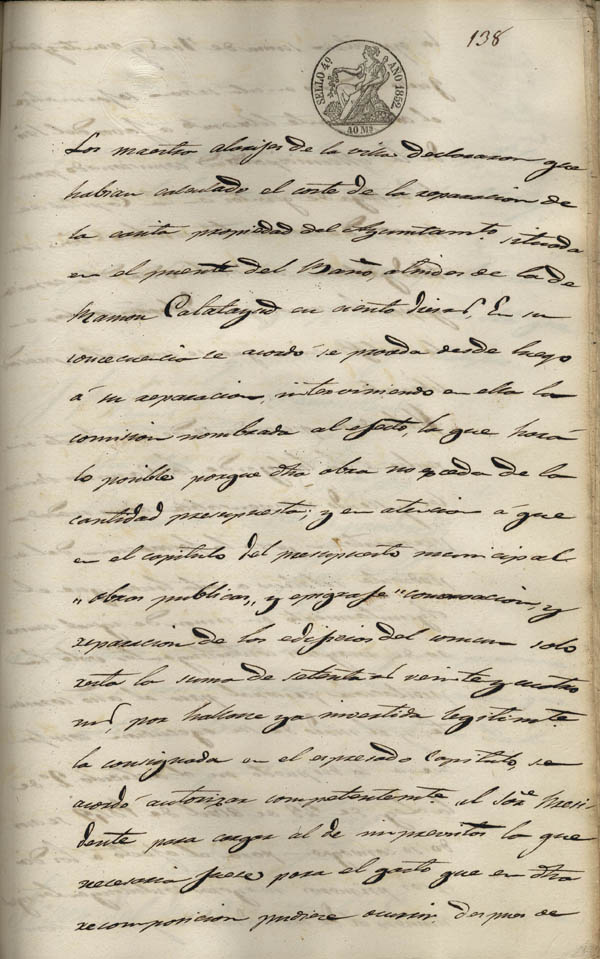 138
SELLO 4º AÑO 1852
40 Ms
Los maestro alarifes de la villa declararon que
habian calculado el coste de la reparacion de
la casita propiedad del Ayuntamto. situada
en el puente del Baño, de la de
Ramon Calatayud en ciento En su
concecuencia se acordó se proceda desde luego
á su reparacion, interviniendo en ella la
comision nombrada al efecto, la que hará
lo posible porque dha obra no esceda de la
cantidad presupuesta; y en atencion a que
en el capitulo del presupuesto municipal
"obras publicas,, y epigrafe "conservacion, y
reparacion de los edificios del comun solo
resta la suma de setenta rs. veinte y cuatro
ms, por hallarse ya invertida legitimte.
la consignada en el espresado Capitulo, se
acordó autorizar competentemte. al Sor. Presi-
dente para cargar al de imprevistos lo que
necesario fuese para el gasto que en dha
recomposicion pudiese ocurrir. despues de